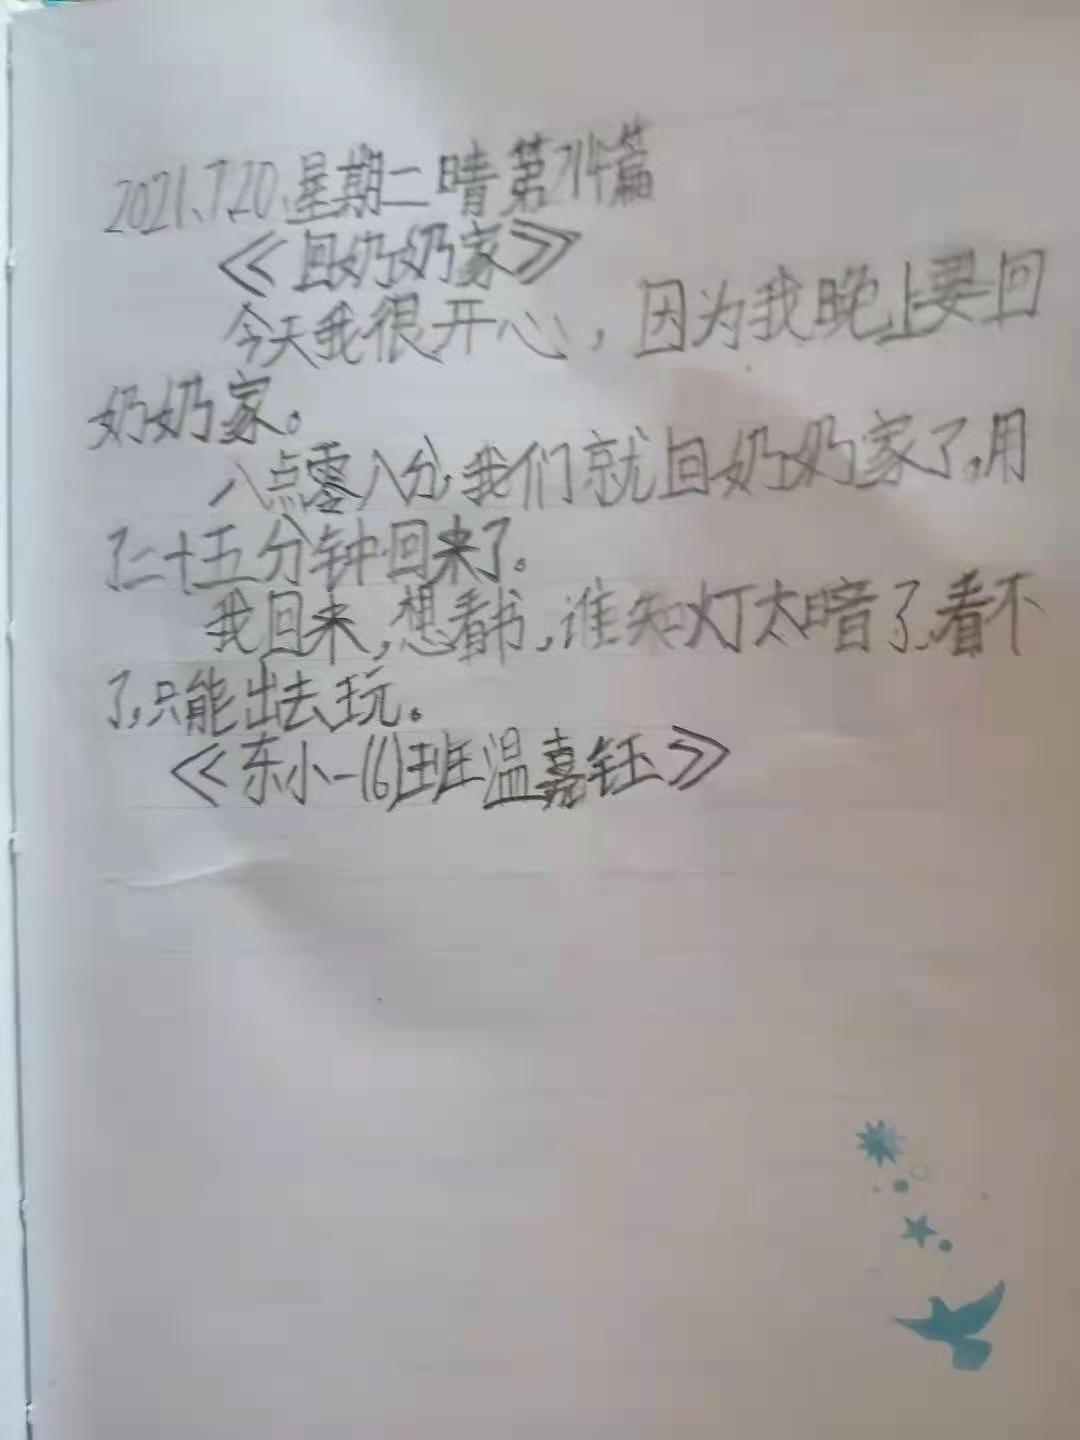 2021.7.20.星期二晴第214篇
《回奶奶家》
今天我很开心，因为我晚上要回
奶奶家。
八点零八分，我们就回奶奶家了，用
了二十五分钟回来了。
我回来，想看书，谁知灯太暗了，看不
了，只能出去玩。
《东小一(6)班温嘉钰》